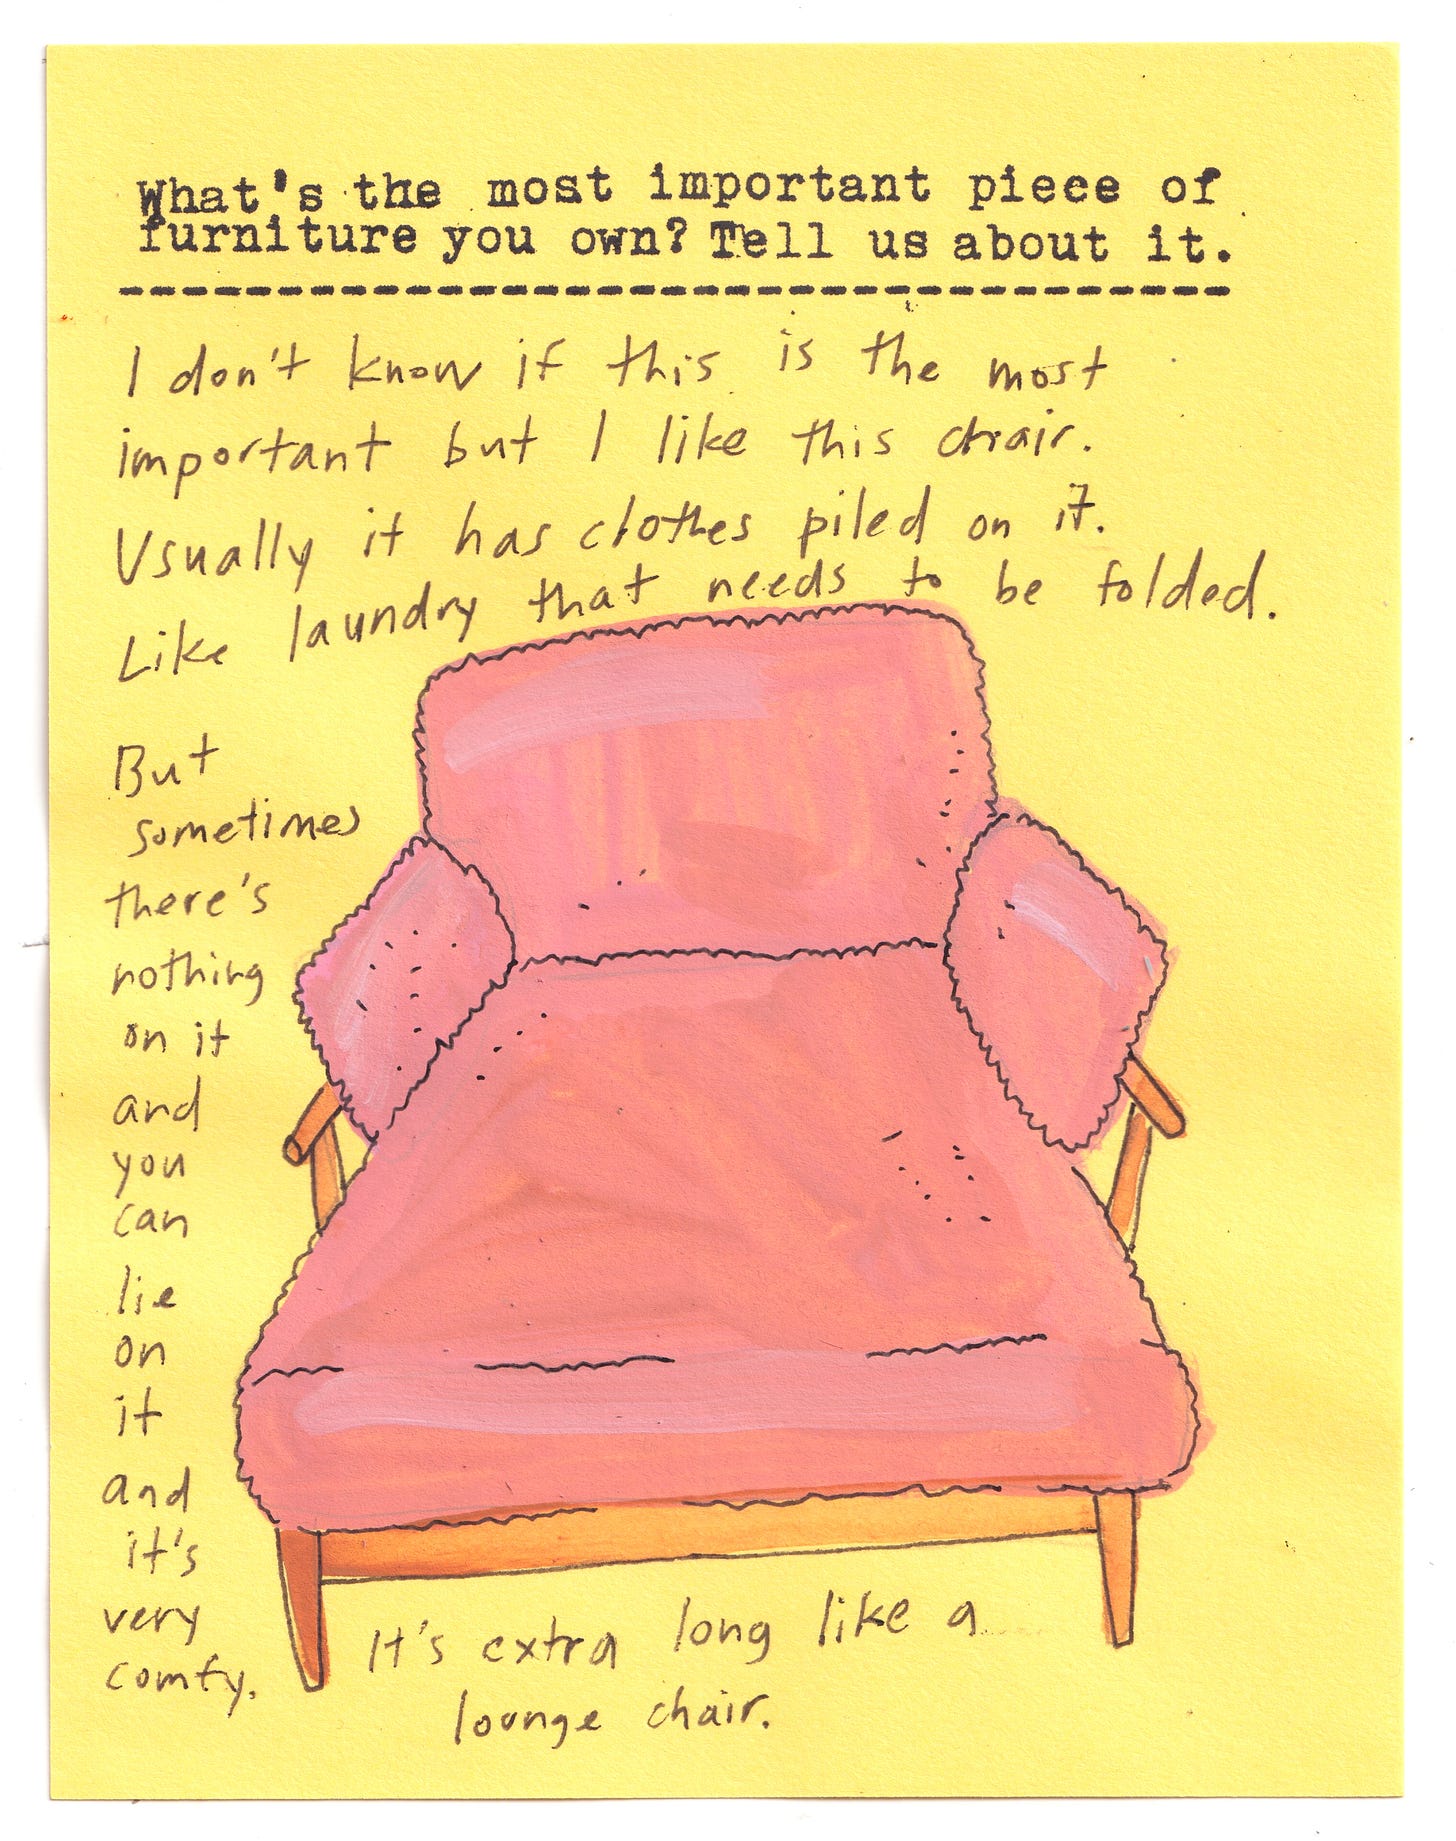 What's the most important piece of
furniture you own? Tell us about it.
I don't know if this is the most
important but I like this chair.
Usually it has clothes piled on it.
Like laundry that needs to be folded.
But
sometimes
there's
nothing
on it
and
you
can
lie
on
it
and
it's
very
comfy.
It's extra long like a
lounge chair.